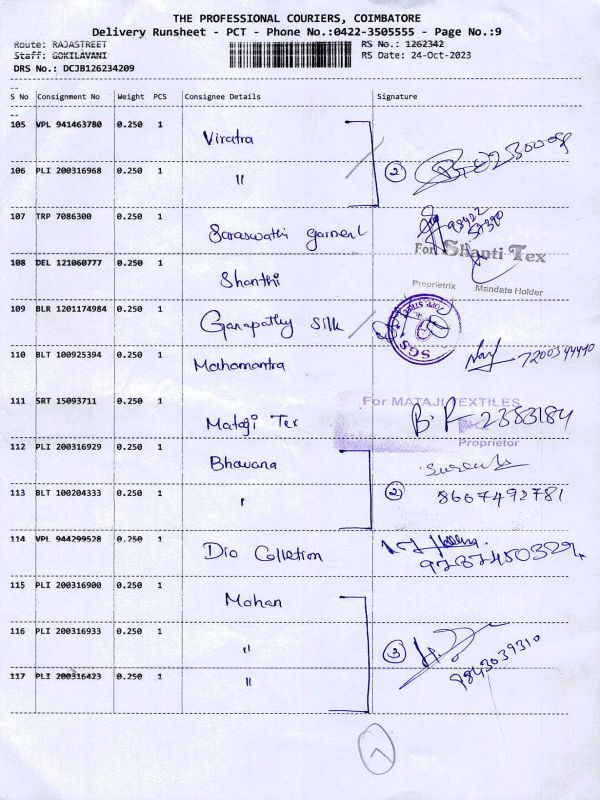 THE PROFESSIONAL COURIERS, COIMBATORE
Delivery Runsheet - PCT - Phone No.:0422-3505555 - Page No.:9
Route: RAJASTREET RS No.: 1262342
Staff: GOKILAVANI RS Date: 24-Oct-2023
DRS No.: DCJB126234209
S No Consignment No Weight PCS Consignee Details Signature
105 VPL 941463780 0.250 1 Viratra
106 PLI 200316968 0.250 1 " 2
107 TRP 7086300 0.250 1 Saraswathi garment
For Shanti Tex
108 DEL 121060777 0.250 1 Shanthi
Proprietrix Mandate Holder
109 BLR 1201174984 0.250 1 Ganapathy Silk SGS
110 BLT 100925394 0.250 1 Mahamantra
111 SRT 15093711 0.250 1 Mataji Tex For MATAJI TEXTILES
B. R 2383184
Proprietor
112 PLI 200316929 0.250 1 Bhavana
113 BLT 100204333 0.250 1 " 2 8667492781
114 VPL 944299528 0.250 1 Dio Colletion
115 PLI 200316900 0.250 1 Mohan
116 PLI 200316933 0.250 1 " 3 9843039310
117 PLI 200316423 0.250 1 "